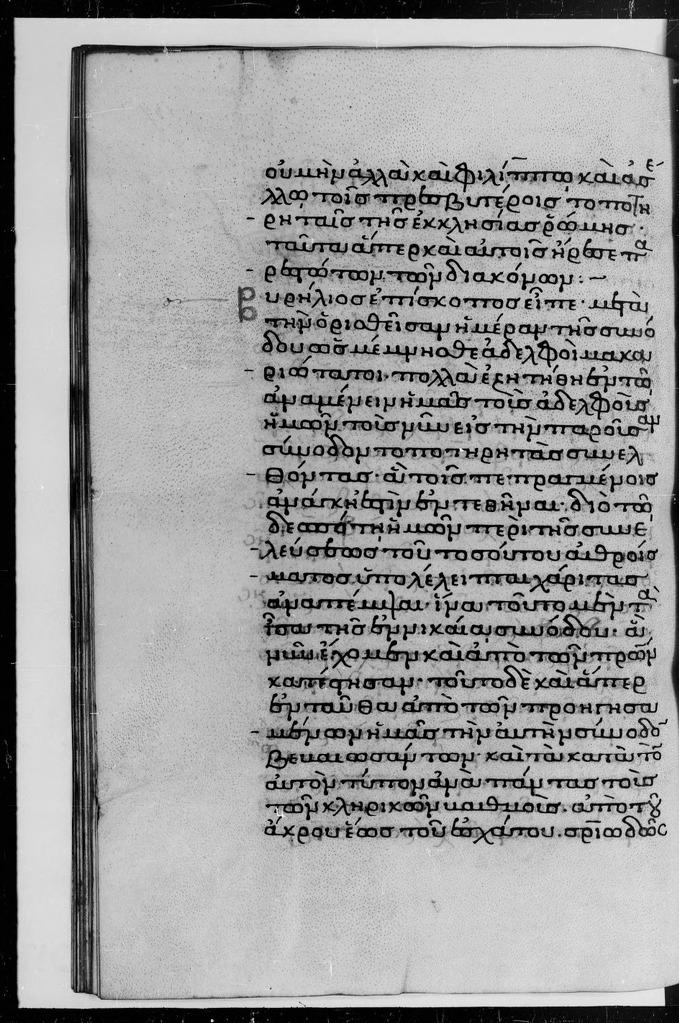 οὐ μὴν ἀλλὰ καὶ φιλίππω καὶ ἀσέ
λλω τοῖς πρεσβυτέροις τοποτη
ρηταῖς τῆς ἐκκλησίας ῥώμης ·
ταῦτα ἅπερ καὶ αὐτοῖς ἤρεσε πα
ρεστώτων τῶν διακόνων :~
υρήλιος ἐπίσκοπος εἶπε · μετὰ
τὴν ὁρισθεῖσαν ἡμέραν τῆς συνό
δου ὡς μέμνησθε ἀδελφοὶ μακα
ριώτατοι · πολλὰ ἐζητήθη ἐν τῶ
ἀναμένειν ἡμᾶς τοῖς ἀδελφοῖς
ἡμῶν τοῖς νῦν εἰς τὴν παροῖσαν
σύνοδον τοποτηρητὰς συνελ
θόντας · ἃ τοῖς πεπραγμένοις
ἀνάγκη ἐστὶν ἐντεθῆναι · διὸ τῶ
δεσπότη ἡμῶν περὶ τῆς συνε
λεύσεως τοῦ τοσούτου ἀθροίσ
ματος ὑπολέλειπται χάριτας
ἀναπέμψαι · ἵνα τοῦτο μὲν τὰ
ἴσα τῆς ἐν νικαία συνόδου · ἃ
νῦν ἔχομεν καὶ ἀπὸ τῶν πρώην
κατέστησαν · τοῦτο δὲ καὶ ἅπερ
ἐνταῦθα ἀπὸ τῶν προηγησα
μένων ἡμᾶς τὴν αὐτὴν σύνοδον
βεβαιωσάντων καὶ τὰ κατὰ τὸν
αὐτὸν τύπον ἀνὰ πάντας τοῖς
τῶν κληρικῶν βαθμοῖς · ἀπὸ τοῦ
ἄκρου ἕως τοῦ ἐσχάτου · ὁρισθῶς